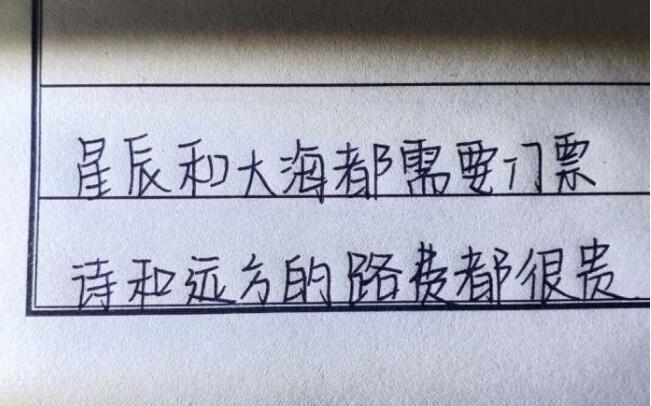 星辰和大海都需要门票
诗和远方的路费都很贵